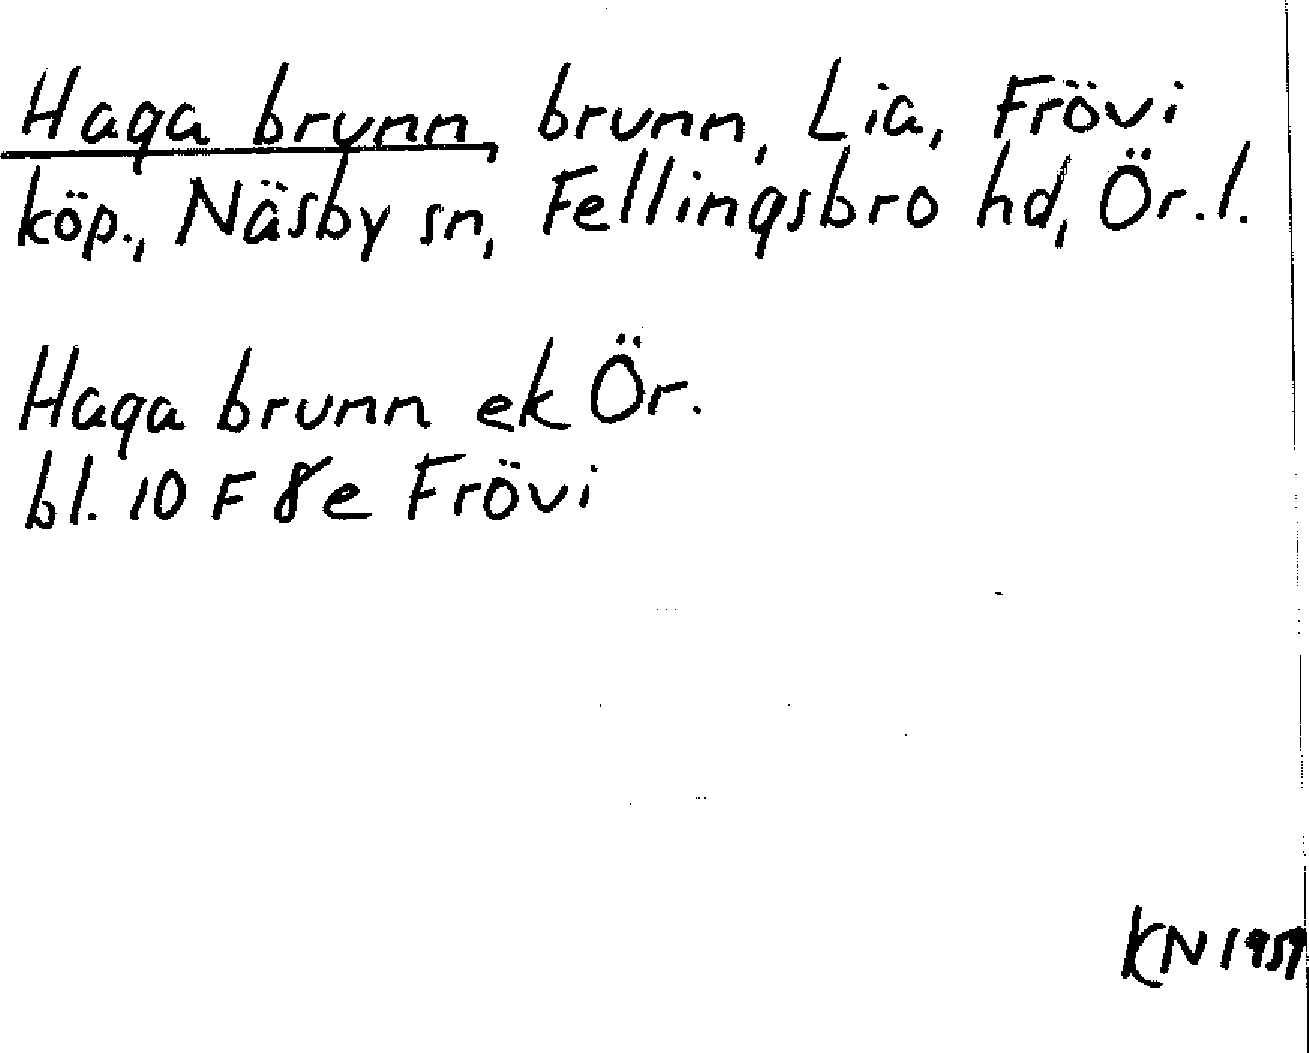 Haga brunn, brunn, Lia, Frövi
köp., Näsby sn, Fellingsbro hd, Ör.l.
Haga brunn ek Ör.
bl. 10 F 8e Frövi
KN 1959